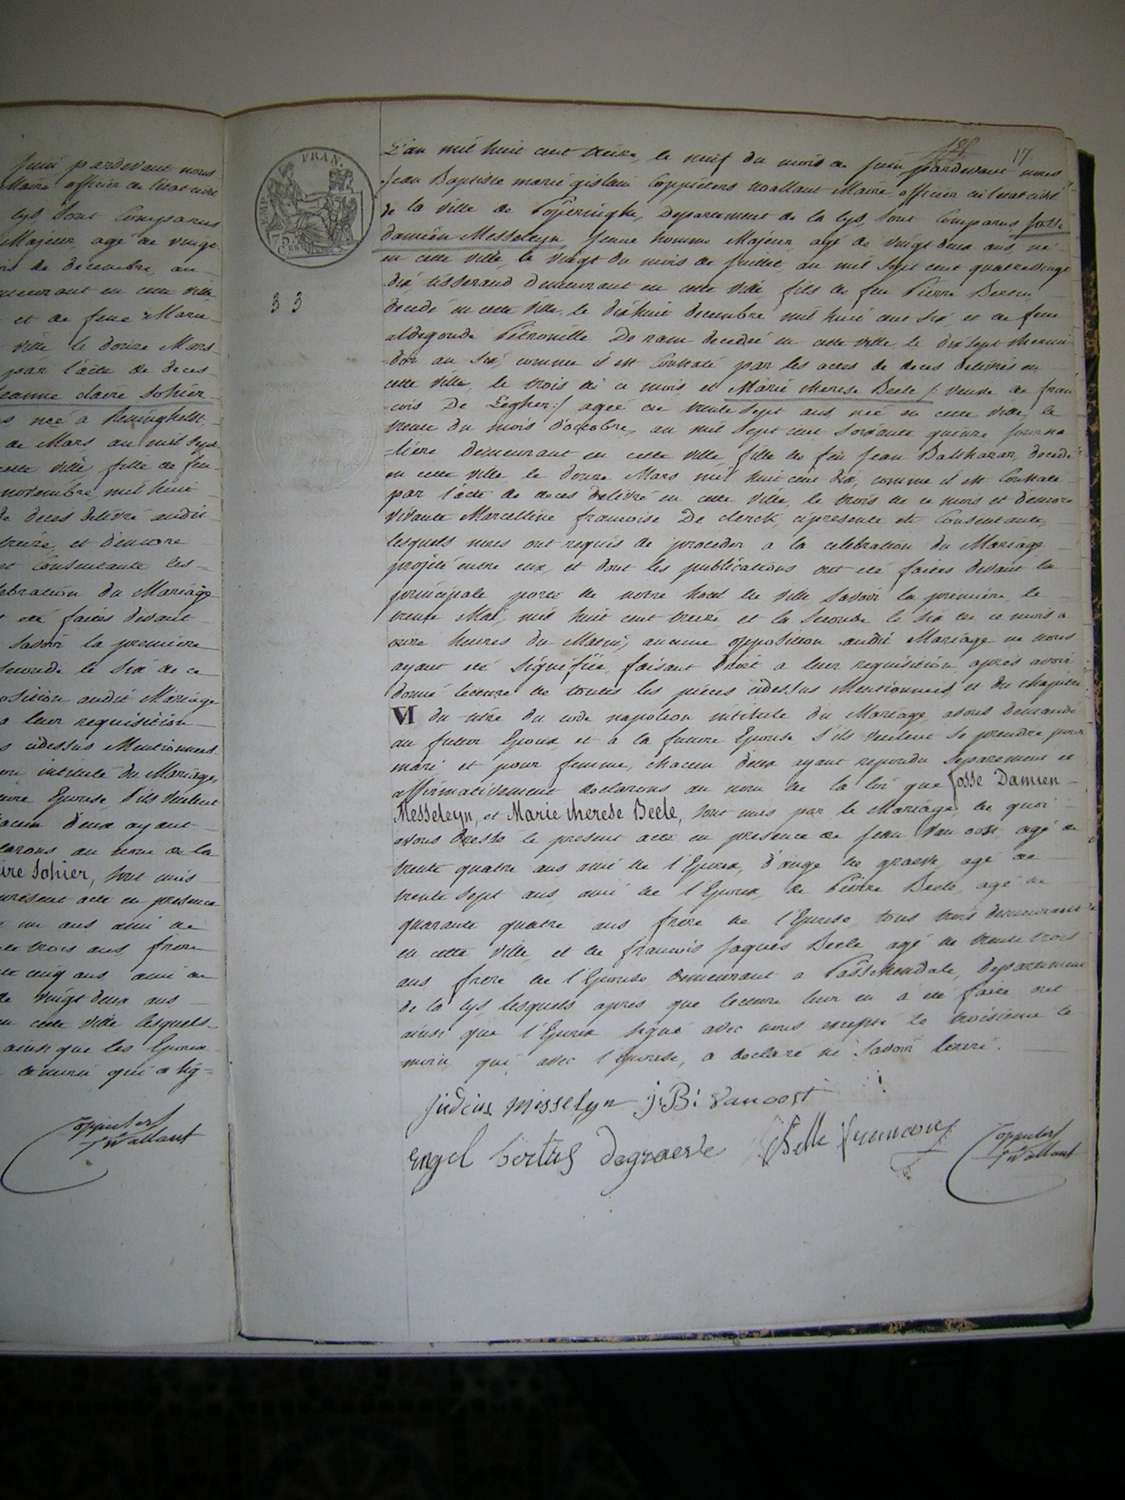 Juin pardevant nous
Maire officier de l'etat civil
lys, sont Comparus
Majeur, agé de vingt
de decembre, an
demeurant en cette ville
et de feue Marie
ville le douze Mars
par l'acte de deces
Jeanne claire Sohier
née à Reninghelst
de Mars, an mil sept
cette ville, fille de feu
novembre mil huit
de deces delivré audit
treize, et d'encore
et Consentante les-
lebration du Mariage
eté faites devant
savoir la premiere
seconde le six de ce
position audit Mariage
a leur requisition
cidessus Mentionnees
intitulé du Mariage,
Epouse s'ils veulent
d'eux ayant
clarons au nom de la
ire Sohier, sont unis
present acte en presence
un ans ami de
trois ans, frere
cinq ans ami de
de vingt deux ans
en cette ville lesquels
ainsi que les Epoux
temoin qui a sig=
Coppieters
T'Wallant
FRAN.
75 C
33
17
L'an mil huit cent treize, le neuf du mois de Juin pardevant nous
Jean Baptiste marie gislain Coppieters twallant Maire officier de l'etat civil
de la ville de Poperinghe, Departement de la Lys, sont Comparus Josse
damien Messeleyn, Jeune homme Majeur, agé de vingt deux ans né
en cette ville, le vingt du mois de Juillet an mil sept cent quatrevingt
dix tisserand demeurant en cette ville fils de feu Pierre
decedé en cette ville, le dixhuit decembre mil huit cent six et de feue
aldegonde Petronille decedée en cette ville le dix sept thermi
dor an six, comme il est Constaté par les actes de deces delivrés en
cette ville, le trois de ce mois, et Marie therese Beele /: veuve de fran
cois De :/ agée de trente sept ans née en cette ville, le
trente du mois d'octobre, an mil sept cent soixante quinze Journa
liere demeurant en cette ville fille de feu Jean Balthazar, decedé
en cette ville le douze Mars mil huit cent dix, comme il est Constaté
par l'acte de deces delivré en cette ville, le trois de ce mois et d'encore
vivante Marcelline francoise De clerck, cipresente et Consentante,
lesquels nous ont requis de proceder a la celebration du Mariage
projeté entre eux, et dont les publications ont eté faites devant la
principale porte de notre hotel de ville savoir la premiere, le
trente Mai, mil huit cent treize et la seconde le six de ce mois a
onze heures du Matin, aucune opposition audit Mariage ne nous
ayant eté signifiée, faisant droit a leur requisition, après avoir
donné lecture de toutes les pièces cidessus Mentionnees et du chapitre
VI du titre du code napoleon intitulé du Mariage, avons demandé
au futur Epoux, et a la future Epouse s'ils veulent se prendre pour
mari et pour femme, chacun d'eux ayant repondu separement et
affirmativement declarons au nom de la loi que Josse Damien
Messeleyn, et Marie therese Beele, sont unis par le Mariage, de quoi
avons dressé le present acte en presence de Jean van oost, agé de
trente quatre ans ami de l'Epoux, d'ange de graeve, agé de
trente sept ans, ami de l'Epoux, de Pierre Beele, agé de
quarante quatre ans frere de l'Epouse, tous trois demeurant
en cette ville, et de francois Jaques Beele, agé de trente trois
ans frere de l'Epouse demeurant a Passchendale, Departement
de la Lys lesquels apres que lecture leur en a eté faite ont
ainsi que l'Epoux signé avec nous excepté le troisieme te
moin, qui, avec l'epouse, a declaré ne savoir Ecrire.
Judocus Misselyn J:B: Vanoost
Engel bertus degraeve Belle francois
Coppieters
T'Wallant